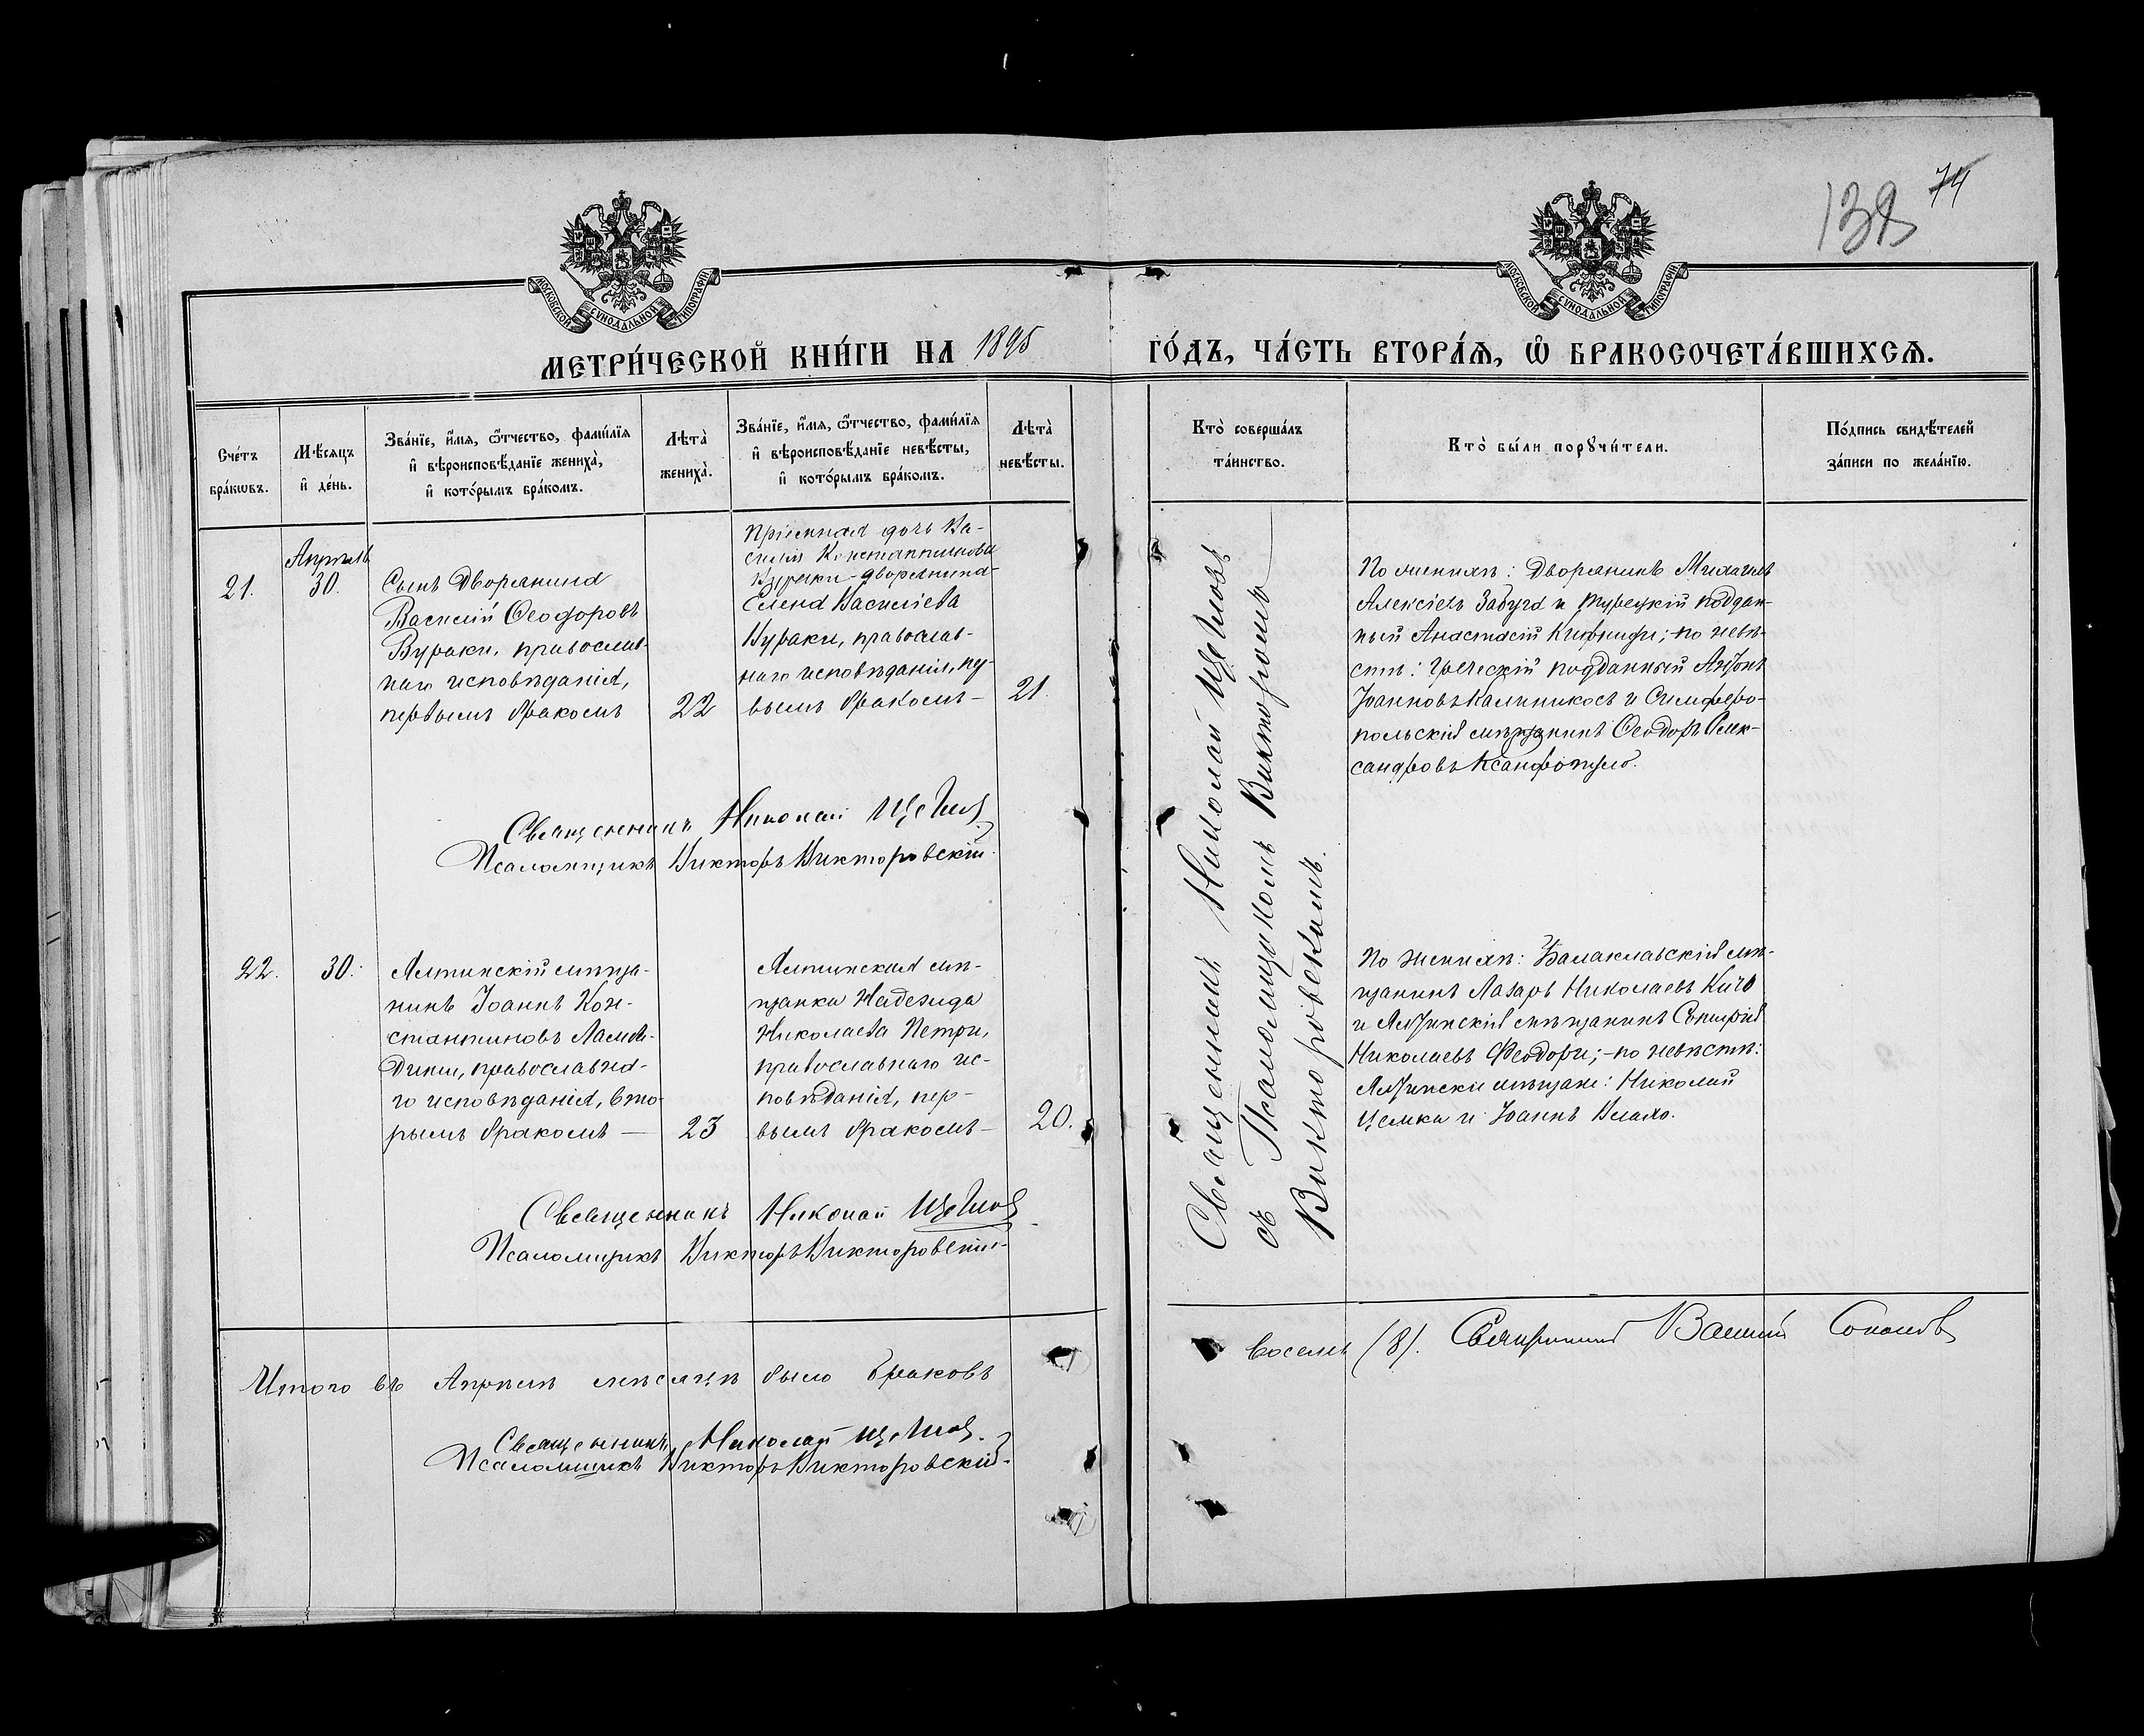 138 74
МОСКОВСКОЙ СУНОДАЛЬНОЙ ТИПОГРАФІИ
МОСКОВСКОЙ СУНОДАЛЬНОЙ ТИПОГРАФІИ
МЕТРИ́ЧЕСКОЙ КНИ́ГИ НА 1895 ГО́ДЪ, ЧА́СТЬ ВТОРА́Ѧ, Ѡ҆ БРАКОСОЧЕТА́ВШИХСѦ.
Сче́тъ
бра́кѡвъ.
Мѣ́сяцъ
и҆ де́нь.
Зва́нїе, и҆́мя, ѻ҆́тчество, фами́лїя
и҆ вѣроисповѣ́данїе жениха̀,
и҆ кото́рымъ бра́комъ.
Лѣта̀
жениха̀.
Зва́нїе, и҆́мя, ѻ҆́тчество, фами́лїя
и҆ вѣроисповѣ́данїе невѣ́сты,
и҆ кото́рымъ бра́комъ.
Лѣта̀
невѣ́сты.
Кто̀ соверша́лъ
та́инство.
Кто̀ бы́ли порꙋчи́тели.
По́дпись свидѣ́телей
за́писи по жела́нїю.
21.
Апрѣль
30.
Сынъ Дворянина
Василій Ѳеодоровъ
Вураки, православ-
наго исповѣданія,
первымъ бракомъ
22
Пріемная дочь Ва-
силія Константинова
дворянина
Елена Васильева
Кураки, православ-
наго исповѣданія, пер-
вымъ бракомъ
21.
Священникъ Николай Щегловъ
съ Псаломщикомъ Викторомъ
Викторовскимъ.
По женихѣ: Дворянинъ Михаилъ
Алексіевъ и Турецкій поддан-
ный Анастасій по невѣ-
стѣ: Греческій подданный
Іоанновъ Калиникосъ и Симферо-
польскій мѣщанинъ Ѳеодоръ Алек-
сандровъ Ксанфопуло.
Священникъ Николай Щегловъ
Псаломщикъ Викторъ Викторовскій
22.
30.
Ялтинскій мѣща-
нинъ Іоаннъ Кон-
стантиновъ
православна-
го исповѣданія, вто-
рымъ бракомъ —
23
Ялтинская мѣ-
щанка Надежда
Николаева Петри,
православнаго ис-
повѣданія, пер-
вымъ бракомъ —
20.
По женихѣ: Балаклавскій мѣ-
щанинъ Лазарь Николаевъ
и Ялтинскій мѣщанинъ
Николаевъ Феодори; — по невѣстѣ:
Ялтинскіе мѣщане: Николай
и Іоаннъ Влахо.
Священникъ Николай Щегловъ
Псаломщикъ Викторъ Викторовскій
Итого въ Апрѣлѣ мѣсяцѣ было браковъ восемь (8). Священникъ Василій Соколовъ
Священникъ Николай Щегловъ.
Псаломщикъ Викторъ Викторовскій.